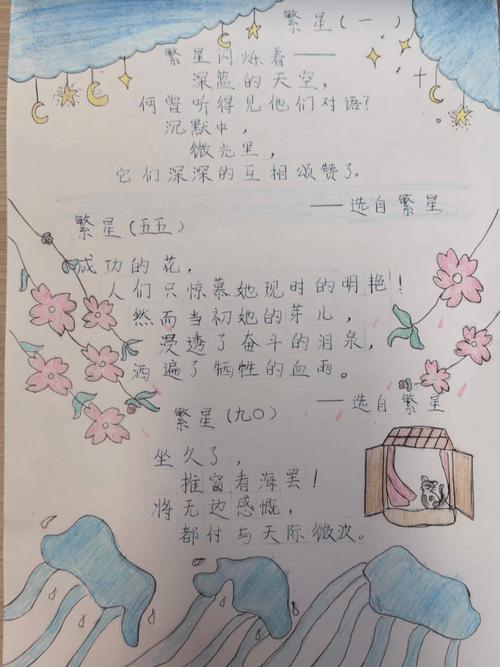 繁星(一)
繁星闪烁着——
深蓝的天空,
何曾听得见他们对语?
沉默中,
微光里,
它们深深的互相颂赞了。
——选自繁星
繁星(五五)
成功的花,
人们只惊慕她现时的明艳!
然而当初她的芽儿,
浸透了奋斗的泪泉,
洒遍了牺牲的血雨。
——选自繁星
繁星(九〇)
坐久了,
推窗看海罢!
将无边感慨,
都付与天际微波。